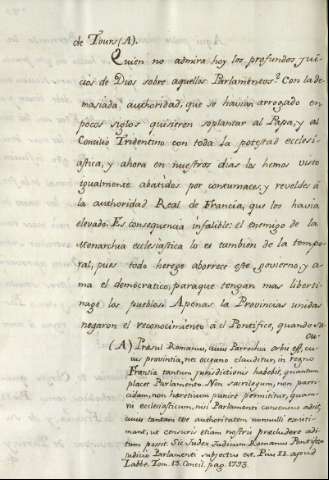 de Tours (A).
Quien no admira hoy los profundos jui-
cios de Dios sobre aquellos Parlamentos? Con la de-
masiada authoridad, que se havian arrogado en
pocos siglos quisieron soplantar al Papa, y al
Concilio Tridentino con toda la potestad ecclesi-
astica, y ahora en nuestros dias los hemos visto
igualmente abatidos por contumaces, y reveldes á
la authoridad Real de Francia, que los havia
elevado. Es consequencia infalible: el enemigo de la
Monarchia ecclesiastica lo es tambien de la tempo-
ral, pues todo herege aborrece este govierno, y a-
ma el democratico, paraque tengan mas liberti-
nage los pueblos. Apenas la Provincias unidas
negaron el reconocimiento á el Pontifice, quando
(A) Præsul Romanus, cuius orbis est,
cuius provintia, nec oceano clauditur, in regno
Frantia tantum jurisdictionis habebit, quantum
placet Parlamento. Non sacrilegum, non parri-
cidam, non hæreticum puniet permititur, quam-
vis ecclesiasticum, nisi Parlamenti consensu adsit,
cuius tantam esse authoritatem nonnulli existi-
mant, ut censuris etiam nostris præcludere adi-
tum possit. Sic Judex Judicum Romanus Pontifex
judicio Parlamenti subjectus est. Pius II. apud
Labbe. Tom. 13. Concil. pag. 1793.